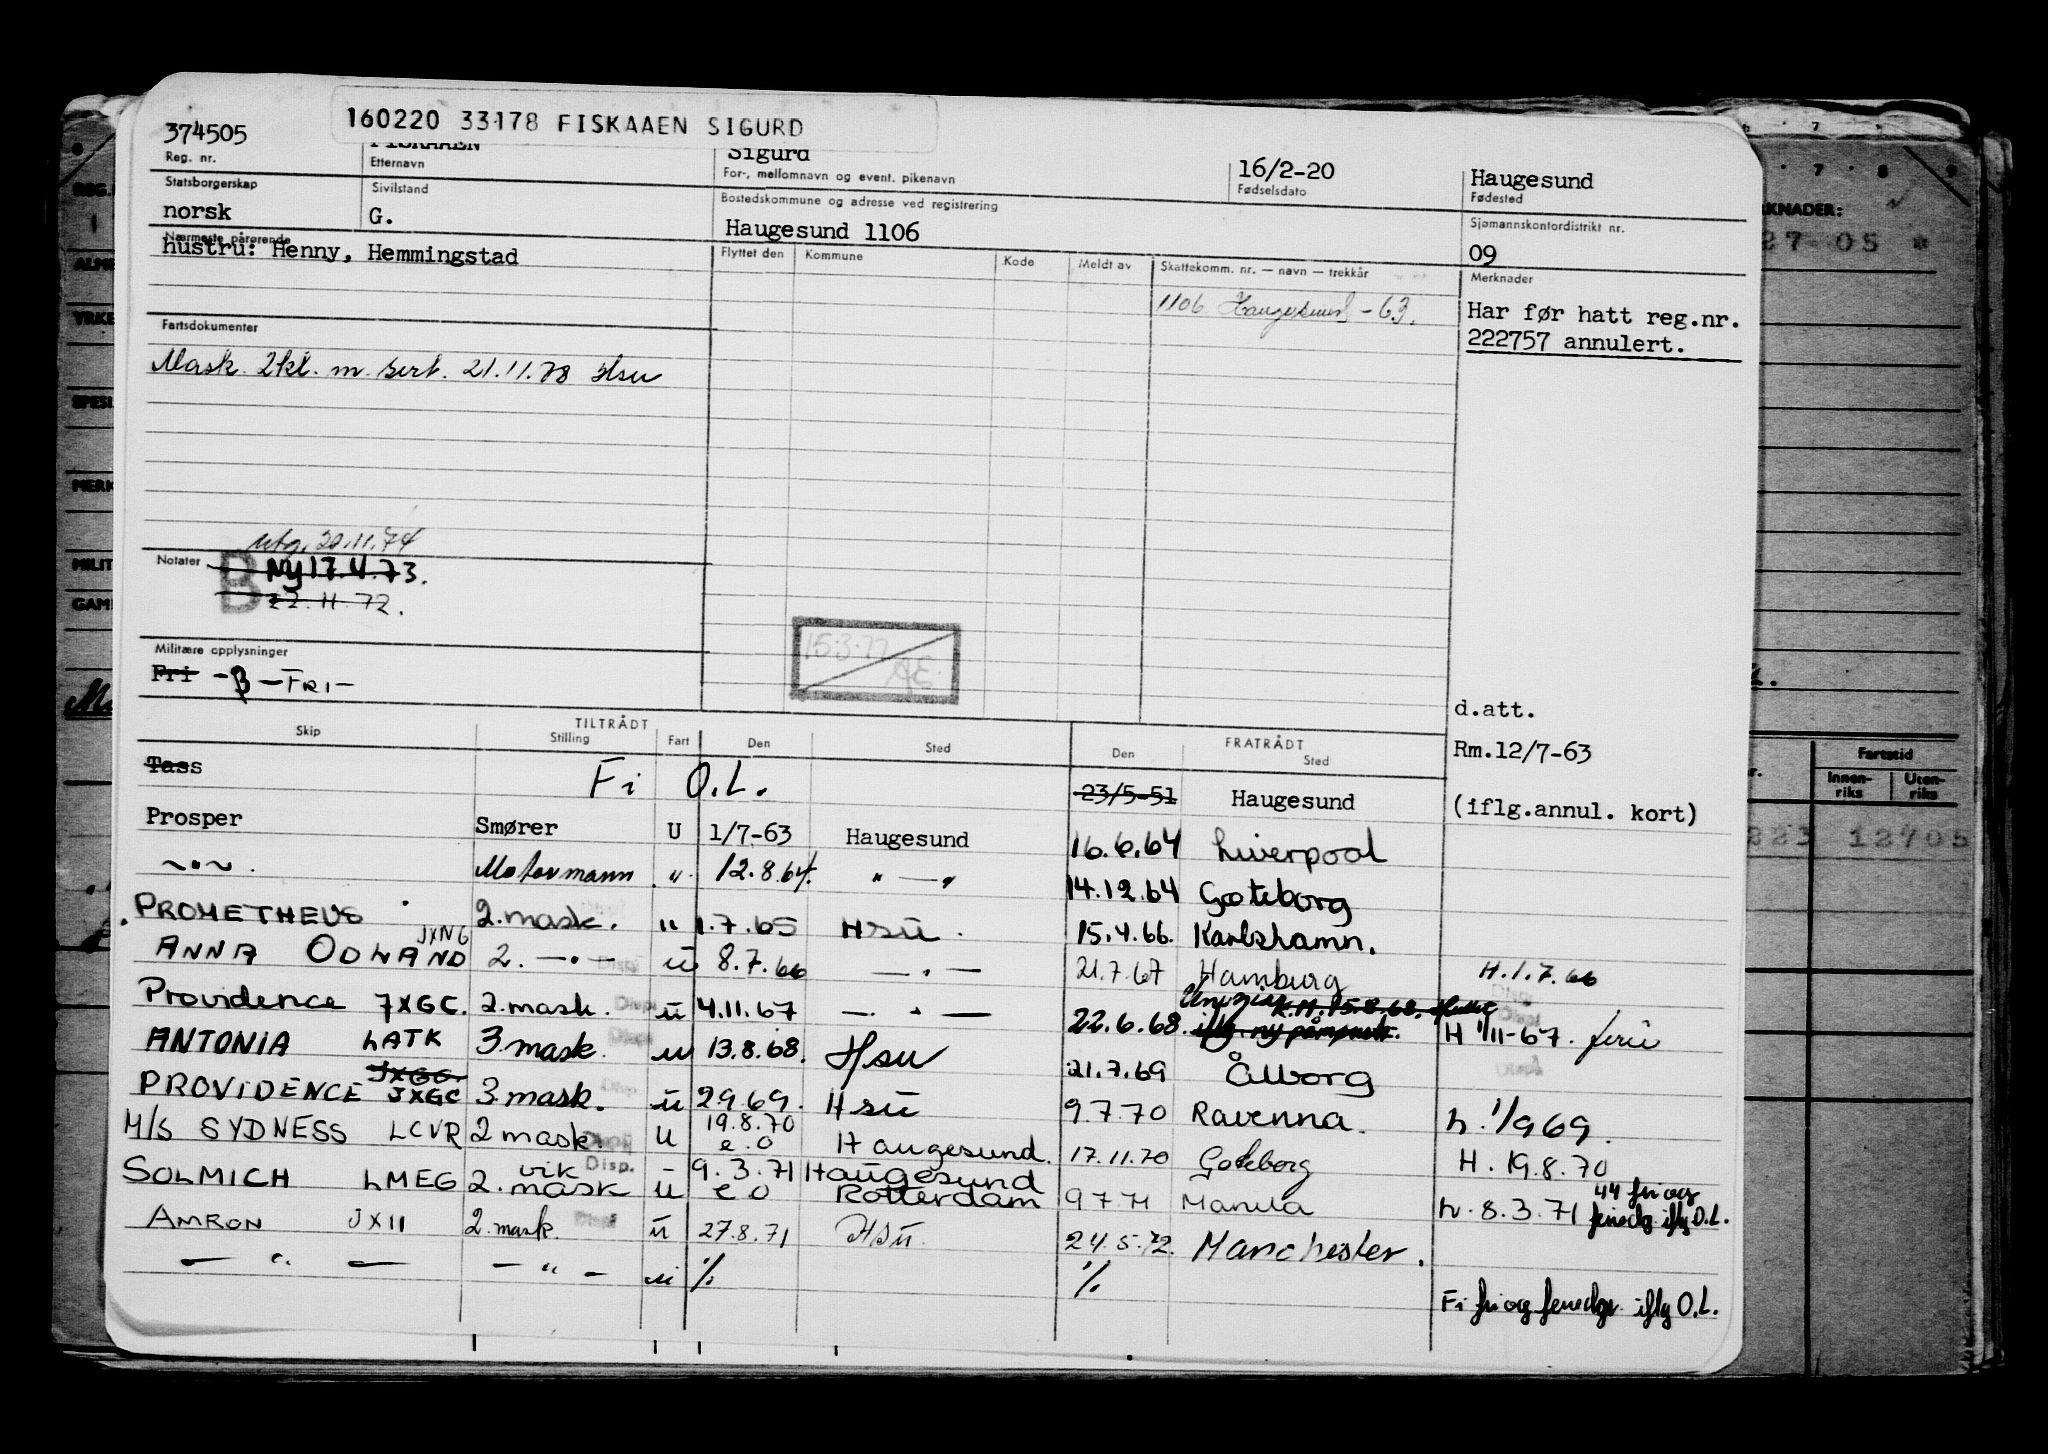 160220 33178 FISKAAEN SIGURD
374505 FISKAAEN Sigurd 16/2-20 Haugesund
Reg. nr. Etternavn For-, mellomnavn og event. pikenavn Fødselsdato Fødested
Statsborgerskap Sivilstand Bostedskommune og adresse ved registrering Sjømannskontordistrikt nr.
norsk G. Haugesund 1106 09
Nærmeste pårørende Flyttet den Kommune Kode Meldt av Skattekomm. nr. — navn — trekkår Merknader
hustru: Henny, Hemmingstad
1106 Haugesund - 63.
Har før hatt reg.nr.
222757 annulert.
Fartsdokumenter
Mask. 2kl. m. sert. 21.11.78 Hsu
utg. 20.11.74
Notater B Ny 17.4.73.
22.11.72.
15.3.77
Militære opplysninger
Fri -B-FRI-
d.att.
Skip TILTRÅDT Stilling Fart Den Sted FRATRÅDT Den Sted
Rm.12/7-63
Tass Fi O.L. 23/5-51 Haugesund (iflg.annul. kort)
Prosper Smører U 1/7-63 Haugesund 16.6.64 Liverpool
—"— Motormann " 12.8.64. "—" 14.12.64 Gøteborg
PROMETHEUS 2.mask. " 1.7.65 Hsu. 15.4.66. Karlshamn.
ANNA ODLAND JXNG 2. —"— Disp. u 8.7.66 —"— 21.7.67 Hamburg H.1.7.66
Providence JXGC. 2.mask. Disp. u 4.11.67 —"— 22.6.68. H 1/11-67. ferie
ANTONIA LATK 3.mask. Disp. u 13.8.68. Hsu 21.7.69 Ålborg
PROVIDENCE JXGC 3.mask. Disp. u 2969. Hsu 9.7.70 Ravenna. h. 1/969.
M/S SYDNESS LCVR 2 mask. Disp. u 19.8.70 e.o Haugesund. 17.11.70 Gøteborg H. 19.8.70
SOLMICH LMEG vik Disp. - 9.3.71 Haugesund
2. mask u e o Rotterdam 9771 Manila h. 8.3.71 44 fri og feriedg iflg O.L.
AMRON JXII 2.mask. Disp. u 27.8.71 Hsu. 24.5.72. Manchester.
—"— —"— u % % Fi fri og feriedgr iflg O.L.
RKNADER:
27 05 *
Fartstid
Innenriks Utenriks
12705